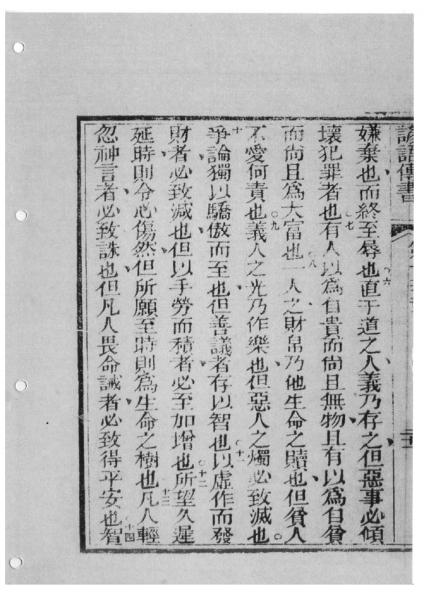 諺語傳書
嫌棄也而終至辱也直于道之人義乃存之但惡事必傾
壞犯罪者也有人以為自貴而尚且無物且有以為自貧
而尚且為大富也一人之財帛乃他生命之贖也但貧人
不愛何責也義人之光乃作樂也但惡人之燭必致滅也
爭論獨以驕傲而至也但善議者存以智也以虛作而發
財者必致減也但以手勞而積者必至加增也所望久遲
延時則令心傷然但所願至時則為生命之樹也凡人輕
忽神言者必致誅也但凡人畏命誡者必致得平安也智